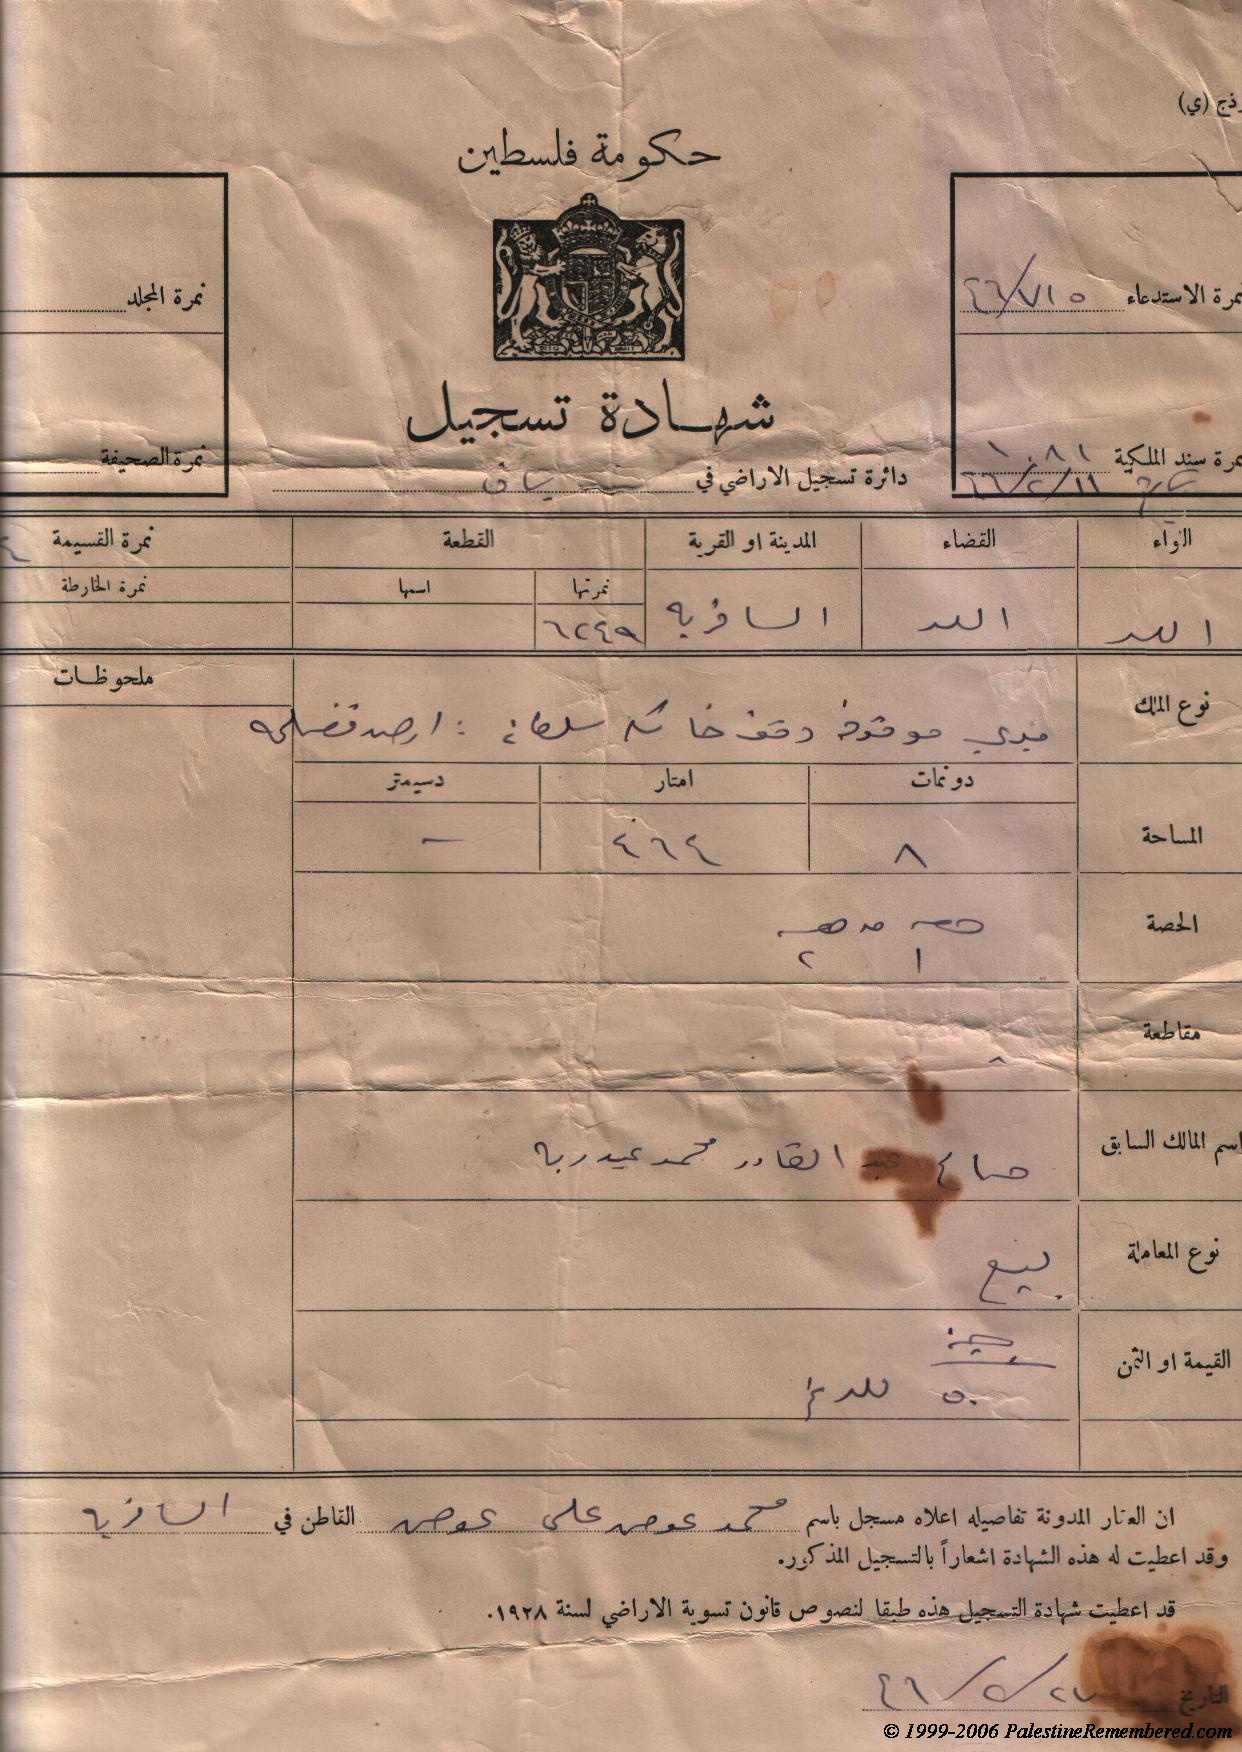 نموذج (ي)
حكومة فلسطين
نمرة الاستدعاء ٧١٥/٤٦
نمرة المجلد
شهادة تسجيل
نمرة سند الملكية
نمرة الصحيفة
دائرة تسجيل الاراضي في يافا
اللواء القضاء المدينة او القرية القطعة نمرة القسيمة
نمرتها اسمها نمرة الخارطة
اللد اللد السافرية
ملحوظات
نوع الملك ميري موقوفة وقف خاسكه سلطان : ارض
دونمات امتار دسيمتر
المساحة ٨ ٤٦٤ -
الحصة حصة من حصة
١ ٢
مقاطعة
اسم المالك السابق صالح عبد القادر محمد عبدربه
نوع المعاملة بيع
القيمة او الثمن
٥٠ للدونم
ان العقار المدونة تفاصيله اعلاه مسجل باسم محمد عوض علي عوض القاطن في السافرية
وقد اعطيت له هذه الشهادة اشعاراً بالتسجيل المذكور.
قد اعطيت شهادة التسجيل هذه طبقا لنصوص قانون تسوية الاراضي لسنة ١٩٢٨.
التاريخ
© 1999-2006 PalestineRemembered.com